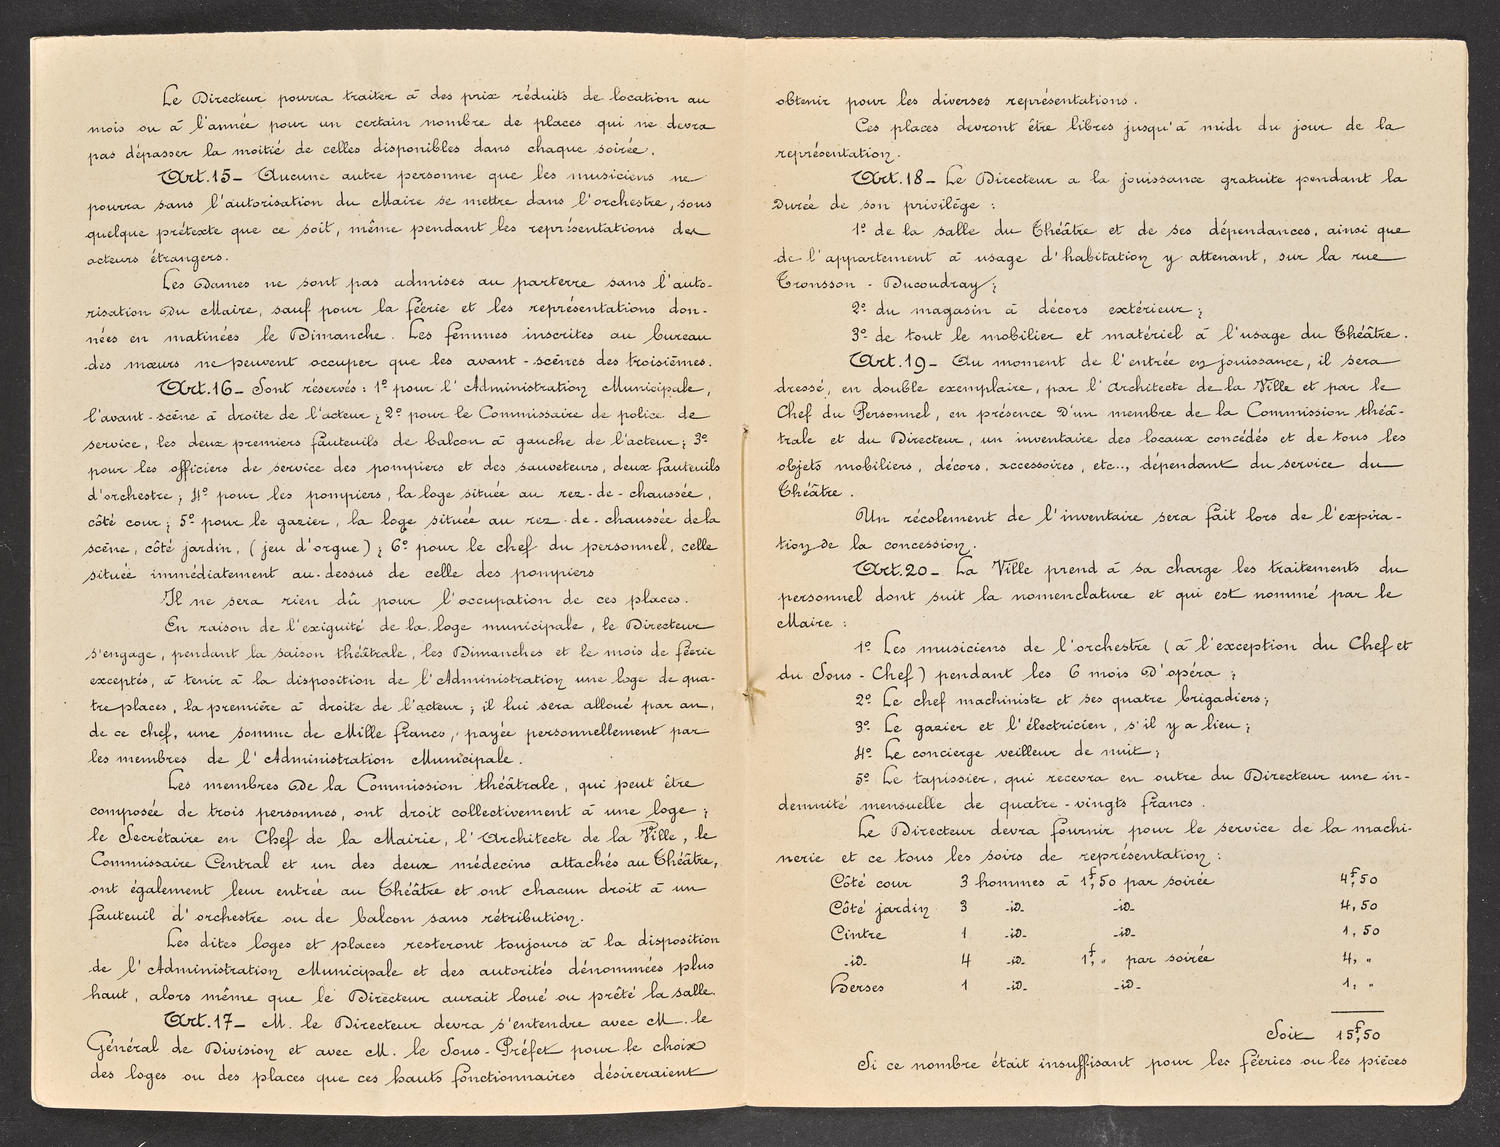 Le Directeur pourra traiter à des prix réduits de location au
mois ou à l'année pour un certain nombre de places qui ne devra
pas dépasser la moitié de celles disponibles dans chaque soirée.
Art. 15 _ Aucune autre personne que les musiciens ne
pourra sans l'autorisation du Maire se mettre dans l'orchestre, sous
quelque prétexte que ce soit, même pendant les représentations des
acteurs étrangers.
Les Dames ne sont pas admises au parterre sans l'auto-
risation du Maire, sauf pour la féerie et les représentations don-
nées en matinées le Dimanche. Les femmes inscrites au bureau
des mœurs ne peuvent occuper que les avant-scènes des troisièmes.
Art. 16 _ Sont réservés : 1º pour l'Administration Municipale,
l'avant-scène à droite de l'acteur ; 2º pour le Commissaire de police de
service, les deux premiers fauteuils de balcon à gauche de l'acteur ; 3º
pour les officiers de service des pompiers et des sauveteurs, deux fauteuils
d'orchestre ; 4º pour les pompiers, la loge située au rez-de-chaussée,
côté cour ; 5º pour le gazier, la loge située au rez-de-chaussée de la
scène, côté jardin, (jeu d'orgue) ; 6º pour le chef du personnel, celle
située immédiatement au-dessus de celle des pompiers
Il ne sera rien dû pour l'occupation de ces places.
En raison de l'exiguité de la loge municipale, le Directeur
s'engage, pendant la saison théâtrale, les Dimanches et le mois de féerie
exceptés, à tenir à la disposition de l'Administration une loge de qua-
tre places, la première à droite de l'acteur ; il lui sera alloué par an,
de ce chef, une somme de Mille francs, payée personnellement par
les membres de l'Administration Municipale.
Les membres de la Commission théâtrale, qui peut être
composée de trois personnes, ont droit collectivement à une loge ;
le Secrétaire en Chef de la Mairie, l'Architecte de la Ville, le
Commissaire Central et un des deux médecins attachés au Théâtre,
ont également leur entrée au Théâtre et ont chacun droit à un
fauteuil d'orchestre ou de balcon sans rétribution.
Les dites loges et places resteront toujours à la disposition
de l'Administration Municipale et des autorités dénommées plus
haut, alors même que le Directeur aurait loué ou prêté la salle.
Art. 17 _ M. le Directeur devra s'entendre avec M. le
Général de Division et avec M. le Sous-Préfet pour le choix
des loges ou des places que ces hauts fonctionnaires désireraient
obtenir pour les diverses représentations.
Ces places devront être libres jusqu'à midi du jour de la
représentation.
Art. 18 _ Le Directeur a la jouissance gratuite pendant la
durée de son privilège :
1º de la salle du Théâtre et de ses dépendances, ainsi que
de l'appartement à usage d'habitation y attenant, sur la rue
Tronsson-Ducoudray ;
2º du magasin à décors extérieur ;
3º de tout le mobilier et matériel à l'usage du Théâtre.
Art. 19 _ Au moment de l'entrée en jouissance, il sera
dressé, en double exemplaire, par l'architecte de la Ville et par le
Chef du Personnel, en présence d'un membre de la Commission théâ-
trale et du Directeur, un inventaire des locaux concédés et de tous les
objets mobiliers, décors, accessoires, etc.., dépendant du service du
Théâtre.
Un récolement de l'inventaire sera fait lors de l'expira-
tion de la concession.
Art. 20 _ La Ville prend à sa charge les traitements du
personnel dont suit la nomenclature et qui est nommé par le
Maire :
1º Les musiciens de l'orchestre (à l'exception du Chef et
du Sous-Chef) pendant les 6 mois d'opéra ;
2º Le chef machiniste et ses quatre brigadiers ;
3º Le gazier et l'électricien, s'il y a lieu ;
4º Le concierge veilleur de nuit ;
5º Le tapissier, qui recevra en outre du Directeur une in-
demnité mensuelle de quatre-vingts francs.
Le Directeur devra fournir pour le service de la machi-
nerie et ce tous les soirs de représentation :
Côté cour 3 hommes à 1f,50 par soirée 4f,50
Côté jardin 3 -id- -id- 4,50
Cintre 1 -id- -id- 1,50
-id- 4 -id- 1f, " par soirée 4, "
Herses 1 -id- -id- 1, "
Soit 15f,50
Si ce nombre était insuffisant pour les féeries ou les pièces